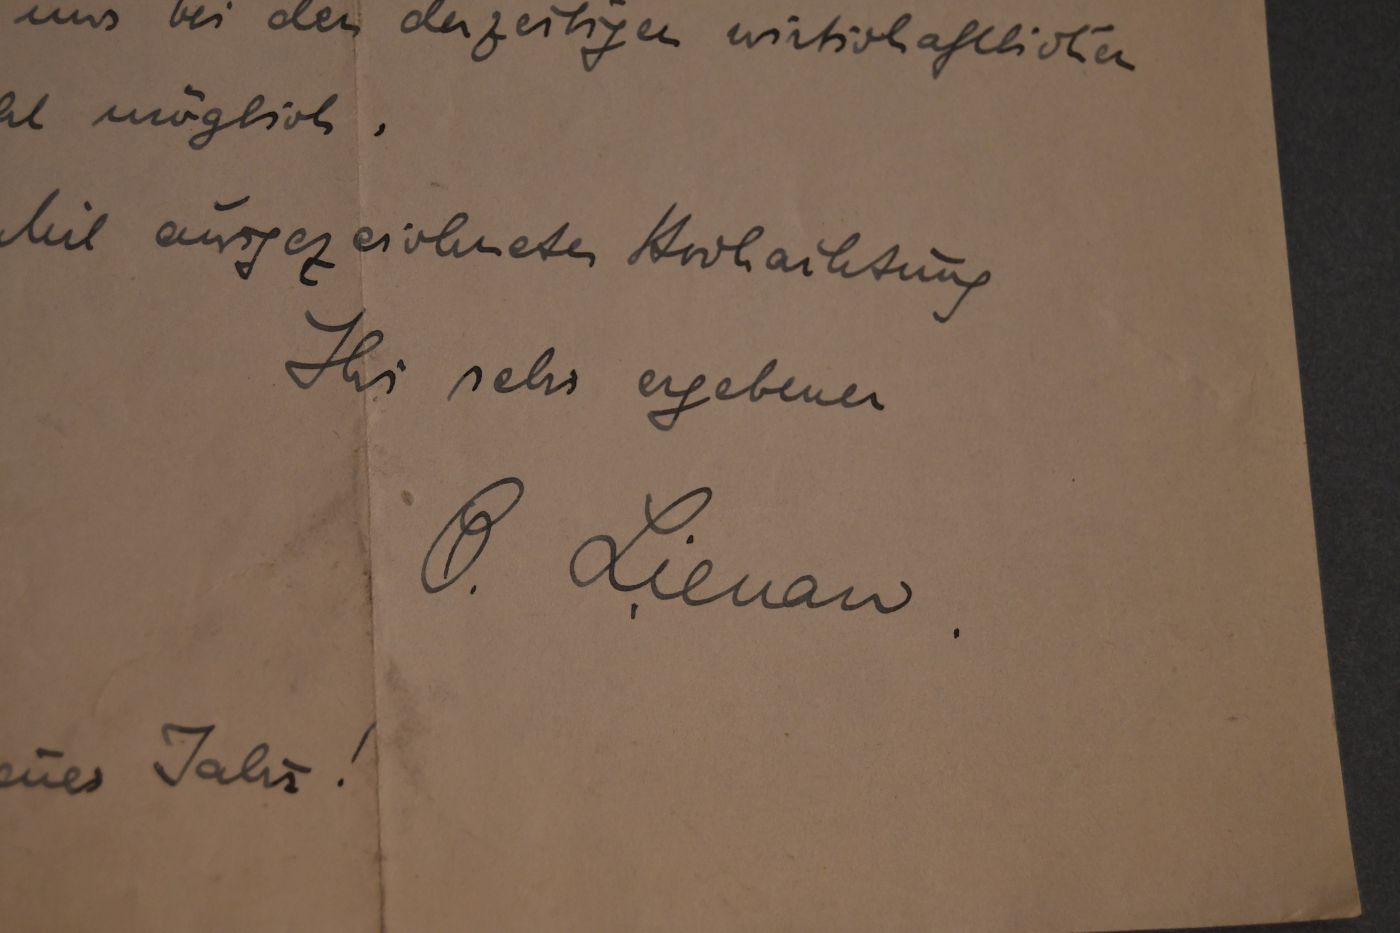 uns bei den derzeitigen wirtschaftlichen
möglich.
Mit ausgezeichneter Hochachtung
Ihr sehr ergebener
O. Lienau.
neues Jahr!